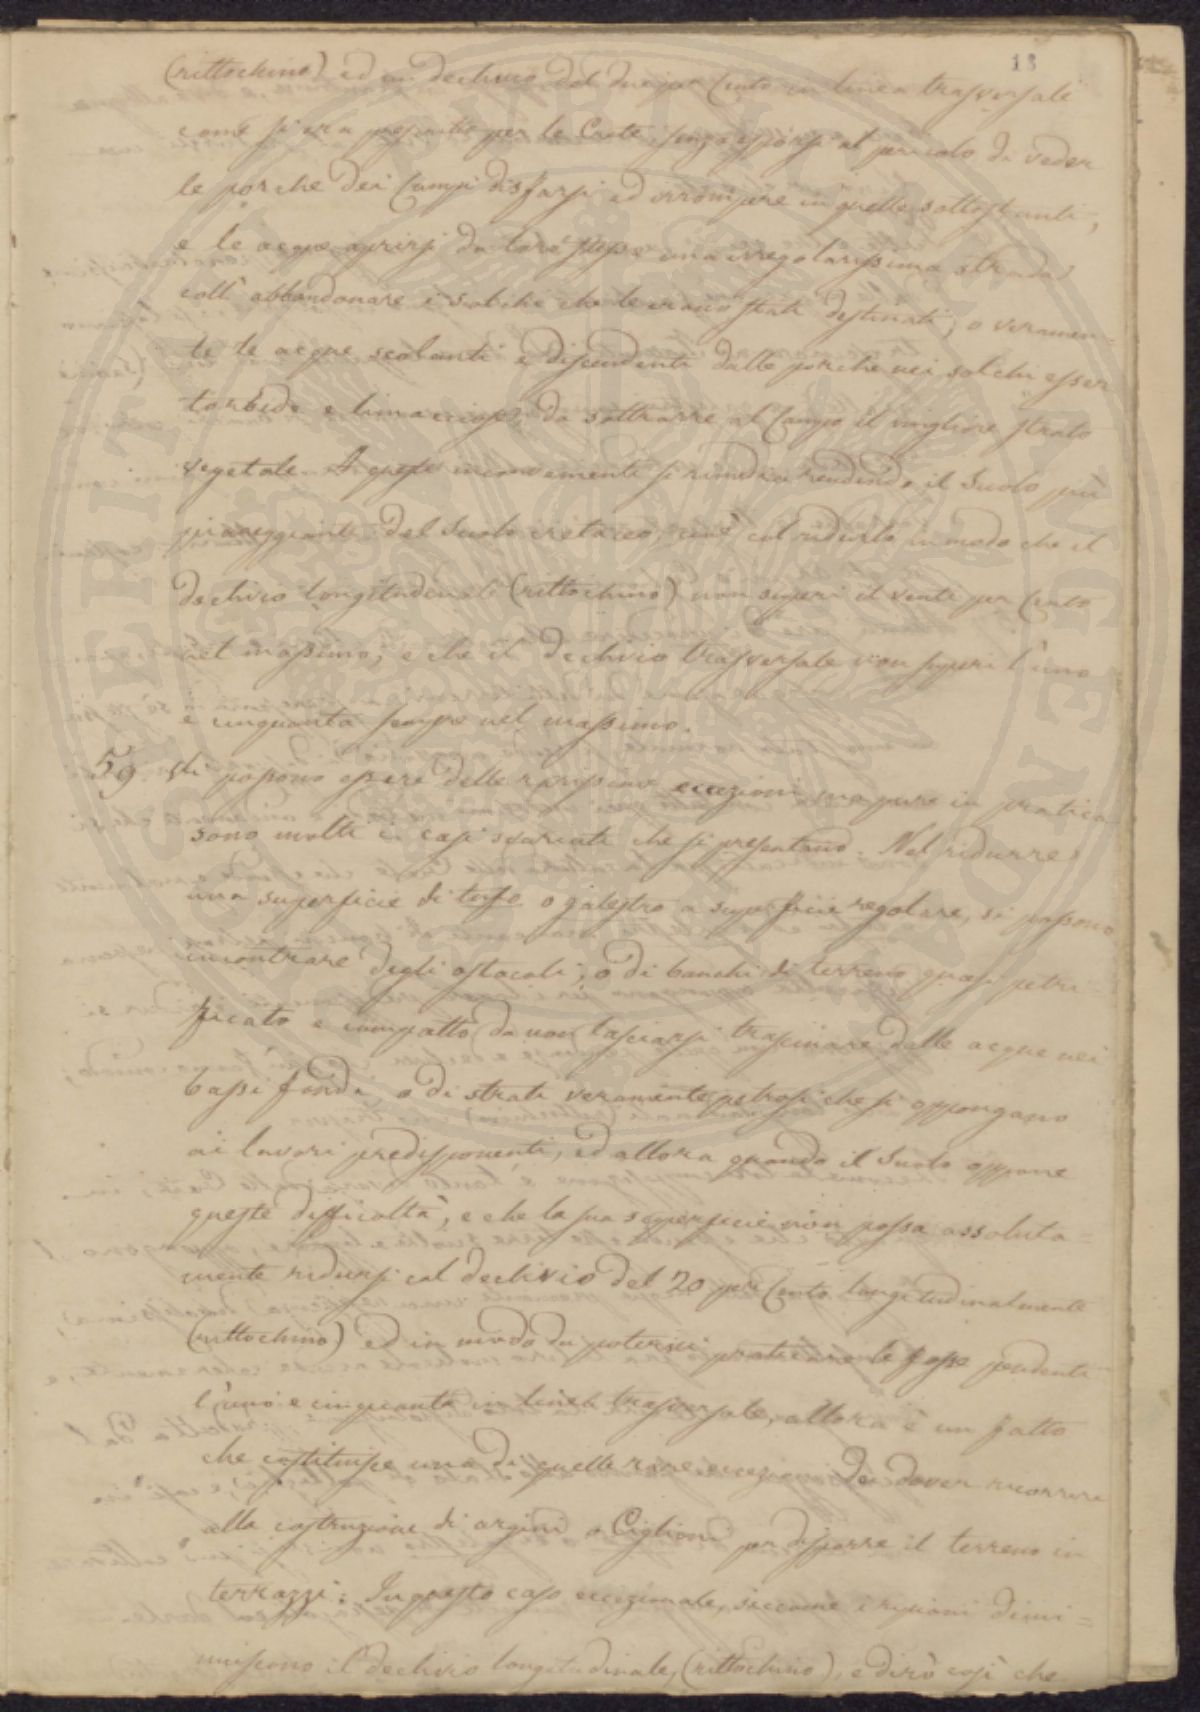 13
(rittochino) ed un declivio del due per Cento in linea trasversale
come si era prescritto per le Crete, senza esporsi al pericolo di veder
le porche dei Campi disfarsi ed irrompere in quelle sottostanti,
e le acque aprirsi da loro stesse una irregolarissima strada
coll' abbandonare i solchi che le erano stati destinati; o veramen=
te le acque scolanti e discendenti dalle porche nei solchi esser
torbide e limacciose, da sottrarre al Campo il migliore strato
vegetale. A questi inconvenienti si rimedia rendendo il Suolo più
pianeggiante del Suolo cretaceo, cioè col ridurlo in modo che il
declivio longitudinale (rittochino) non superi il venti per Cento
nel massimo, e che il declivio trasversale non superi l'uno
e cinquanta sempre nel massimo.
59. Vi possono essere delle rarissime eccezioni ma pure in pratica
sono molti i casi svariati che si presentano. Nel ridurre
una superficie di tufo o galestro a superficie regolare, si possono
incontrare degli ostacoli, o di banchi di terreno quasi petri=
ficato e compatto da non lasciarsi trascinare dalle acque nei
bassi fondi, o di strati veramente petrosi che si oppongano
ai lavori predisponenti, ed allora quando il Suolo oppone
queste difficoltà, e che la sua superficie non possa assoluta=
mente ridursi col declivio del 20 per Cento longitudinalmente
(rittochino) ed in modo da potervi praticare le fosse pendenti
l'uno e cinquanta in linea trasversale, allora è un fatto
che costituisce una di quelle rare eccezioni da dover ricorrere
alla costruzione di argini o Ciglioni per disporre il terreno in
terrazzi. In questo caso eccezionale, siccome i ripiani dimi=
nuiscono il declivio longitudinale, (rittochino), e dirò così che